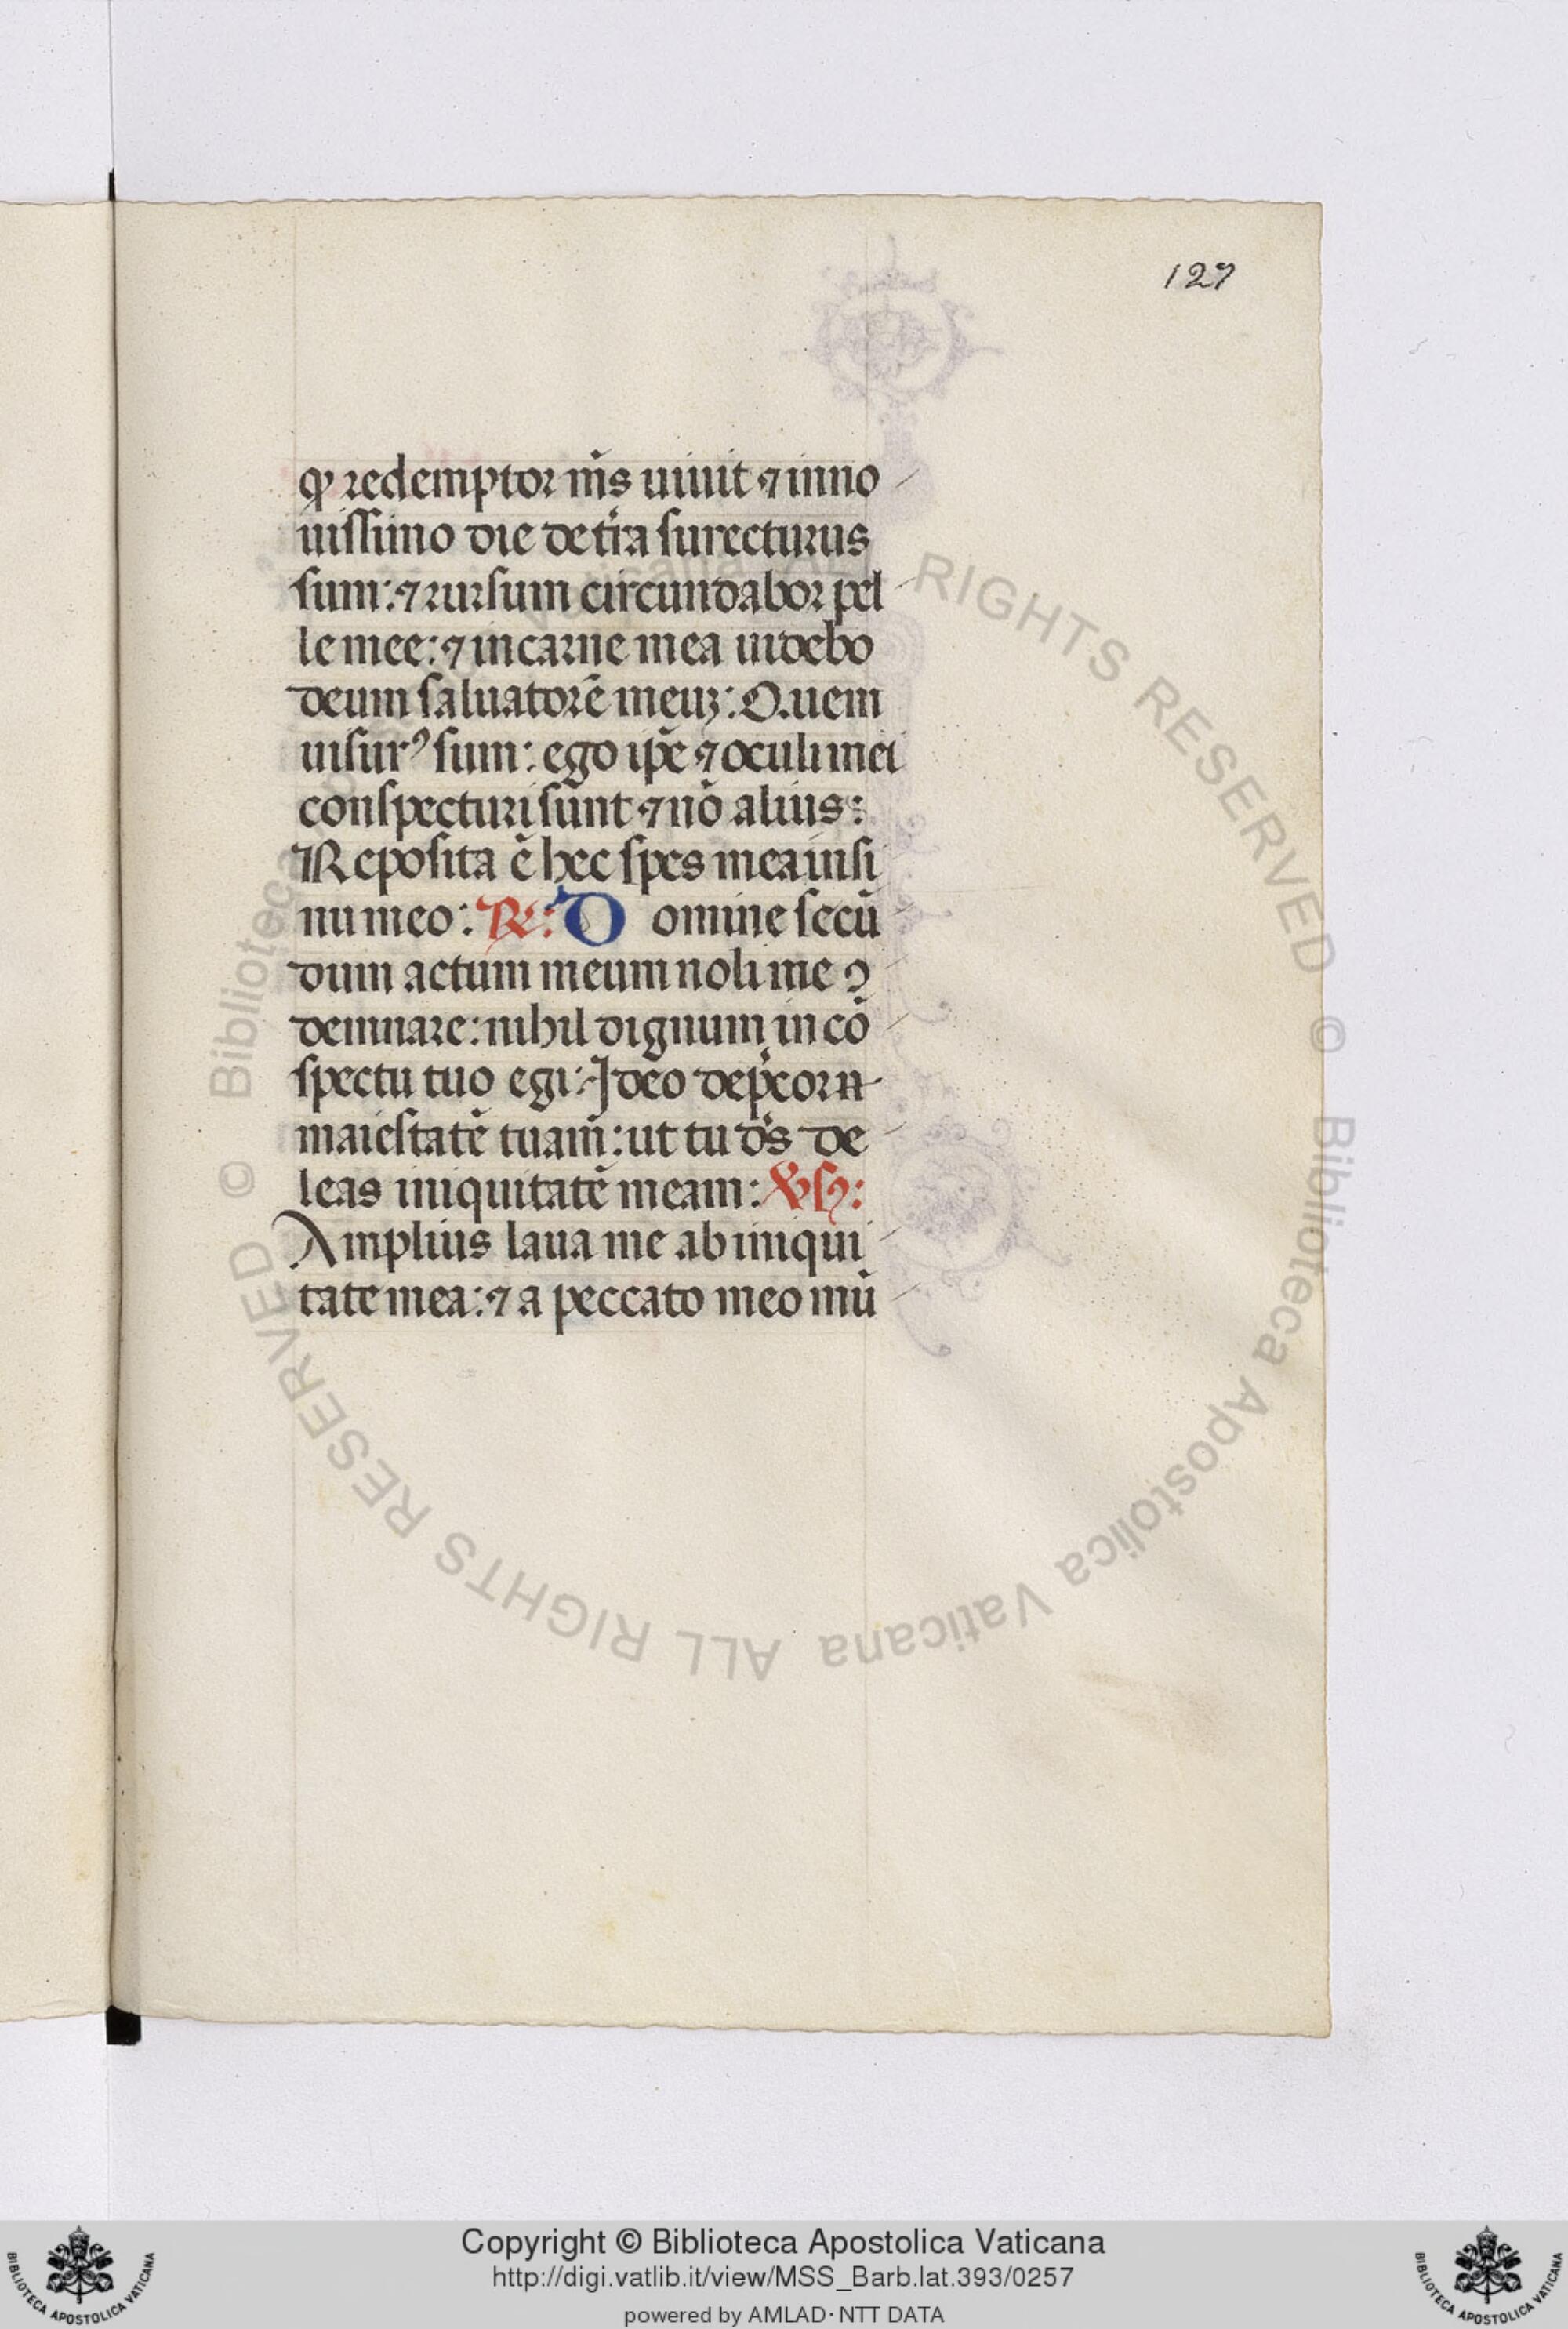 127
ꝙ redemptor nr̄s uiuit ⁊ inno
uissimo die de tr̄ra surecturus
sum: ⁊ rursum circundabor pel
le mee: ⁊ in carne mea uidebo
deum saluatorē meuꝫ: Quem
uisurꝰ sum: ego ip̄e ⁊ oculi mei
conspecturi sunt ⁊ nō alius:
Reposita ē hec spes mea in si
nu meo: ℞: Domine secū
dum actum meum noli me ↄ
demnare: nihil dignum in cō
spectu tuo egi: Ideo dep̄cor
maiestatē tuam: ut tu ds̄ de
leas iniquitatē meam: ℣ſ:
Amplius laua me ab iniqui
tate mea: ⁊ a peccato meo mū
© Biblioteca Apostolica Vaticana ALL RIGHTS RESERVED © Biblioteca Apostolica Vaticana ALL RIGHTS RESERVED
Copyright © Biblioteca Apostolica Vaticana
http://digi.vatlib.it/view/MSS_Barb.lat.393/0257
powered by AMLAD·NTT DATA
BIBLIOTECA APOSTOLICA VATICANA
BIBLIOTECA APOSTOLICA VATICANA